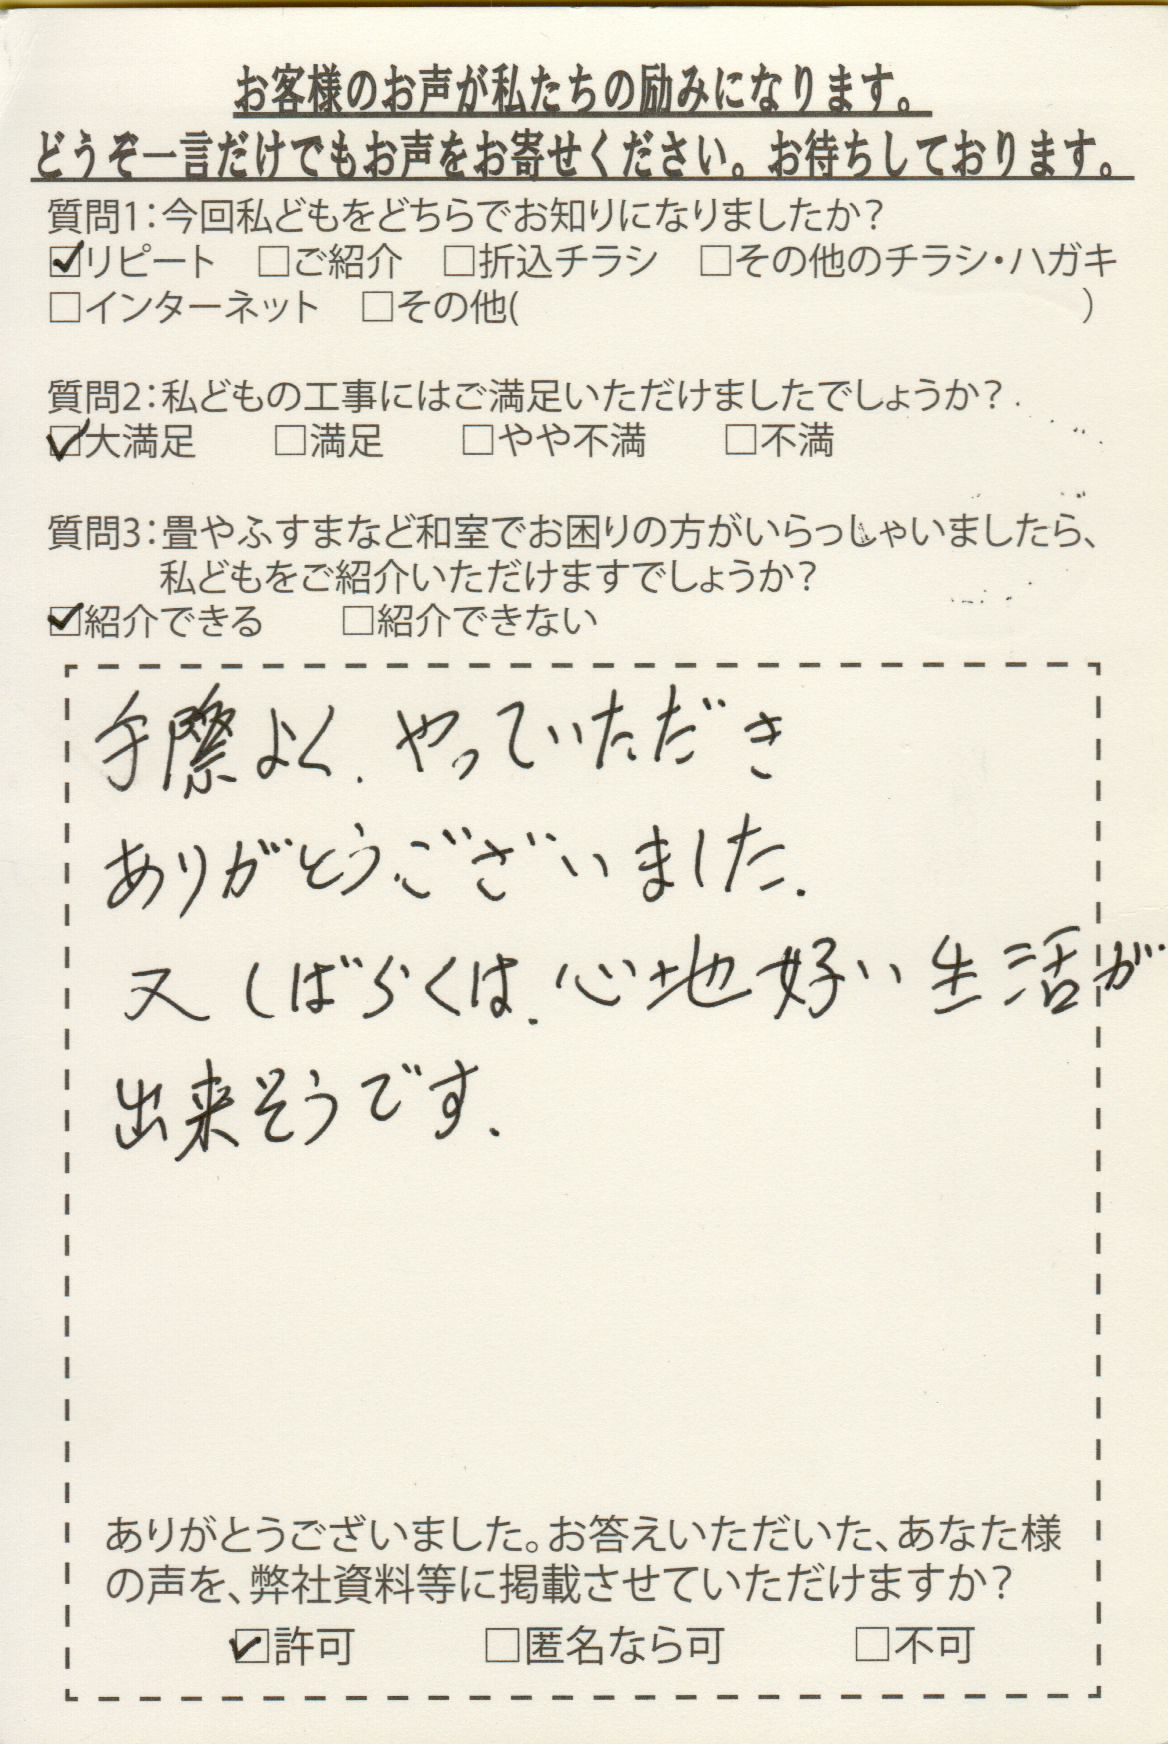 お客様のお声が私たちの励みになります。
どうぞ一言だけでもお声をお寄せください。お待ちしております。
質問1：今回私どもをどちらでお知りになりましたか？
☑リピート □ご紹介 □折込チラシ □その他のチラシ・ハガキ
□インターネット □その他( )
質問2：私どもの工事にはご満足いただけましたでしょうか？
☑大満足 □満足 □やや不満 □不満
質問3：畳やふすまなど和室でお困りの方がいらっしゃいましたら、
私どもをご紹介いただけますでしょうか？
☑紹介できる □紹介できない
手際よく、やっていただき
ありがとうございました.
又しばらくは、心地好い生活が
出来そうです.
ありがとうございました。お答えいただいた、あなた様
の声を、弊社資料等に掲載させていただけますか？
☑許可 □匿名なら可 □不可